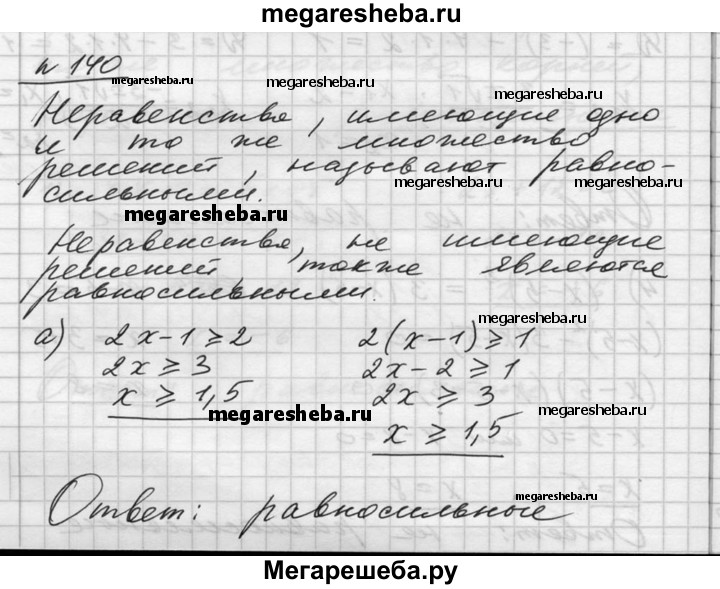 megaresheba.ru
n 140
Неравенства, имеющие одно
и то же множество
megaresheba.ru
решений, называют равно-
megaresheba.ru
megaresheba.ru
сильными.
megaresheba.ru
Неравенства, не имеющие
решений, также являются
megaresheba.ru
равносильными.
megaresheba.ru
а) 2x-1⩾2 2(x-1)⩾1
2x⩾3 2x-2⩾1
x⩾1,5 2x⩾3
megaresheba.ru
megaresheba.ru
x⩾1,5
megaresheba.ru
Ответ: равносильные
Мегарешеба.ру